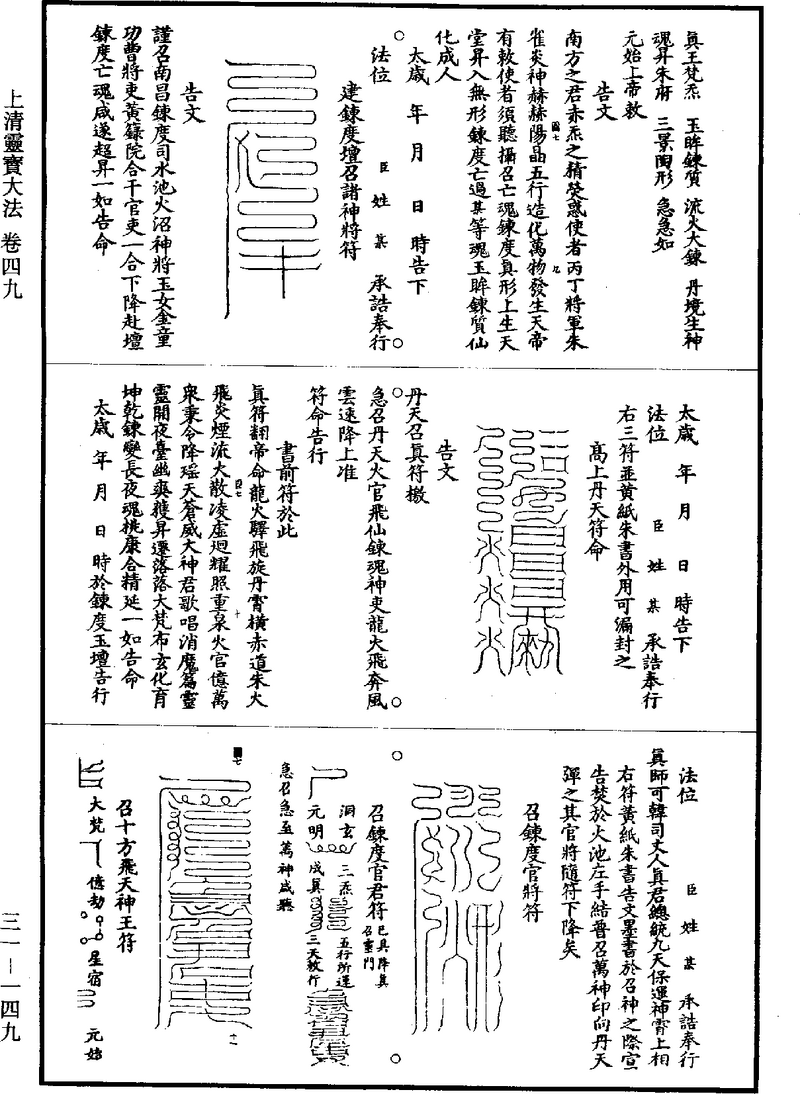 上清靈寶大法 卷四九
三一—一四九
眞王梵炁 玉眸鍊質 流火大鍊 丹境生神
魂昇朱府 三景陶形 急急如
元始上帝敕
告文
南方之君赤炁之精熒惑使者丙丁將軍朱
雀炎神赫赫陽晶五行造化萬物發生天帝
有敕使者須聽攝召亡魂鍊度眞形上生天
堂昇入無形鍊度亡過某等魂玉眸鍊質仙
化成人
太歲 年 月 日 時告下
法位 臣 姓 某 承誥奉行
建鍊度壇召諸神將符
告文
謹召南昌鍊度司水池火沼神將玉女金童
功曹將吏黃籙院合干官吏一合下降赴壇
鍊度亡魂咸遂超昇一如告命
太歲 年 月 日 時告下
法位 臣 姓 某 承誥奉行
右三符並黃紙朱書外用可漏封之
高上丹天符命
告文
丹天召眞符檄
急召丹天火官飛仙鍊魂神吏龍火飛奔風
雲速降上准
符命告行
書前符於此
眞符翻帝命龍火驛飛旋丹霄橫赤道朱火
飛炎煙流火散凌虛迴耀照重泉火官億萬
衆秉令降瑤天蒼威大神君歌唱消魔篇靈
靈開夜臺幽爽獲昇遷落落大梵布玄化育
坤乾鍊變長夜魂桃康合精延一如告命
太歲 年 月 日 時於鍊度玉壇告行
法位 臣 姓 某 承誥奉行
眞師可韓司丈人眞君總統九天保運神霄上相
右符黃紙朱書告文墨書於召神之際宣
告焚於火池左手結普召萬神印向丹天
彈之其官將隨符下降矣
召鍊度官將符
召鍊度官君符 已具降眞召靈門
洞玄 三炁 五行所運
元明 成眞 三天敕行
急召急至 萬神咸聽
召十方飛天神王符
大梵 億劫 星宿 元始